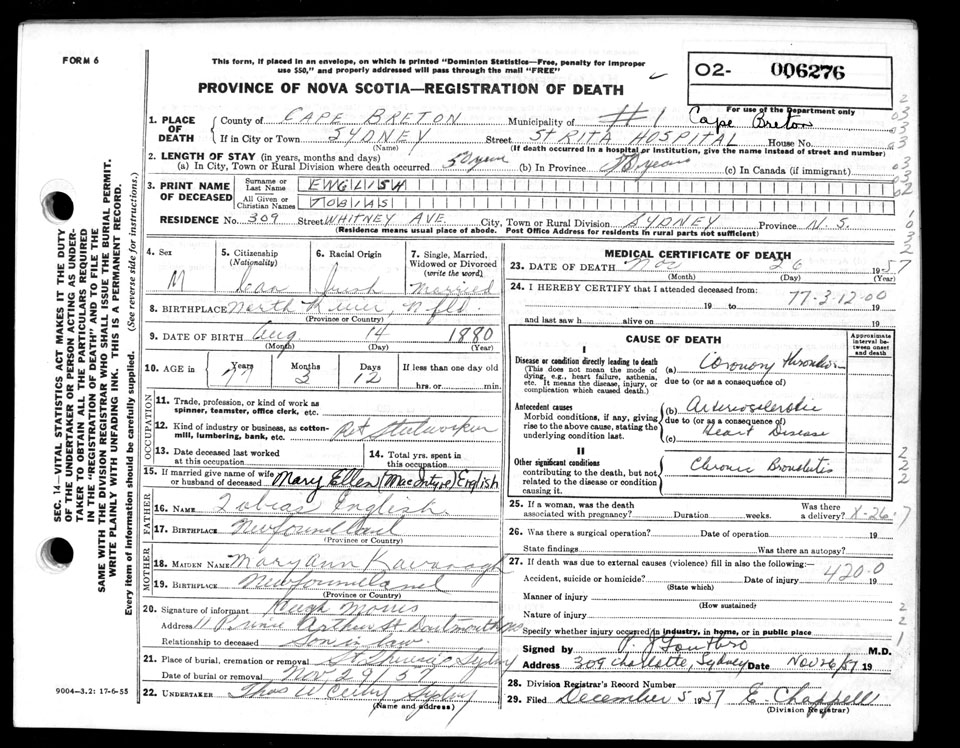 FORM 6
This form, if placed in an envelope, on which is printed "Dominion Statistics—Free, penalty for improper
use $50," and properly addressed will pass through the mail "FREE"
02- 006276
PROVINCE OF NOVA SCOTIA—REGISTRATION OF DEATH
For use of the Department only
Cape Breton
1. PLACE OF DEATH
County of CAPE BRETON Municipality of #1
If in City or Town SYDNEY Street ST RITA HOSPITAL House No.
(Name) (If death occurred in a hospital or institution, give the name instead of street and number)
2. LENGTH OF STAY (in years, months and days)
(a) In City, Town or Rural Division where death occurred 50 years (b) In Province 50 years (c) In Canada (if immigrant)
3. PRINT NAME OF DECEASED
Surname or Last Name ENGLISH
All Given or Christian Names TOBIAS
RESIDENCE No. 309 Street WHITNEY AVE City, Town or Rural Division SYDNEY Province N.S.
(Residence means usual place of abode. Post Office Address for residents in rural parts not sufficient)
4. Sex M
5. Citizenship (Nationality) Can
6. Racial Origin Irish
7. Single, Married, Widowed or Divorced (write the word) Married
8. BIRTHPLACE North River, Nfld.
(Province or Country)
9. DATE OF BIRTH Aug 14 1880
(Month) (Day) (Year)
10. AGE in 77 Years 3 Months 12 Days If less than one day old
hrs. or min.
OCCUPATION
11. Trade, profession, or kind of work as
spinner, teamster, office clerk, etc.
12. Kind of industry or business, as cotton-
mill, lumbering, bank, etc. Ret Steelworker
13. Date deceased last worked
at this occupation
14. Total yrs. spent in
this occupation
15. If married give name of wife
or husband of deceased Mary Ellen (MacIntyre) English
FATHER
16. NAME Tobias English
17. BIRTHPLACE Newfoundland
(Province or Country)
MOTHER
18. MAIDEN NAME Mary Ann Kavanagh
19. BIRTHPLACE Newfoundland
(Province or Country)
20. Signature of informant Hugh Morris
Address 11 Prince Arthur St Dartmouth NS
Relationship to deceased Son in law
21. Place of burial, cremation or removal Sydney
Date of burial or removal Nov 29/57
22. UNDERTAKER Thos W Sydney
(Name and address)
9004-3.2: 17-6-55
MEDICAL CERTIFICATE OF DEATH
23. DATE OF DEATH Nov 26 1957
(Month) (Day) (Year)
24. I HEREBY CERTIFY that I attended deceased from:
77-3-12-00
19 to 19
and last saw h alive on 19
CAUSE OF DEATH
Approximate interval between onset and death
I
Disease or condition directly leading to death
(This does not mean the mode of
dying, e.g., heart failure, asthenia,
etc. It means the disease, injury, or
complication which caused death.)
(a) Coronary thrombosis
due to (or as a consequence of)
Antecedent causes
Morbid conditions, if any, giving
rise to the above cause, stating the
underlying condition last.
(b) Arteriosclerotic
due to (or as a consequence of)
(c) Heart Disease
II
Other significant conditions
contributing to the death, but not
related to the disease or condition
causing it.
Chronic Bronchitis
25. If a woman, was the death
associated with pregnancy? Duration weeks. Was there
a delivery? X-26-7
26. Was there a surgical operation? Date of operation 19
State findings Was there an autopsy?
27. If death was due to external causes (violence) fill in also the following:
420.0
Accident, suicide or homicide? Date of injury 19
(State which)
Manner of injury
(How sustained)
Nature of injury
Specify whether injury occurred in industry, in home, or in public place
Signed by M.D.
Address 309 Charlotte, Sydney Date Nov 26/57 19
28. Division Registrar's Record Number
29. Filed December 5 1957 E. Chappell
(Division Registrar)
SEC. 14—VITAL STATISTICS ACT MAKES IT THE DUTY
OF THE UNDERTAKER OR PERSON ACTING AS UNDER-
TAKER TO OBTAIN ALL THE PARTICULARS REQUIRED
IN THE "REGISTRATION OF DEATH" AND TO FILE THE
SAME WITH THE DIVISION REGISTRAR WHO SHALL ISSUE THE BURIAL PERMIT.
WRITE PLAINLY WITH UNFADING INK. THIS IS A PERMANENT RECORD.
Every item of information should be carefully supplied. (See reverse side for instructions.)